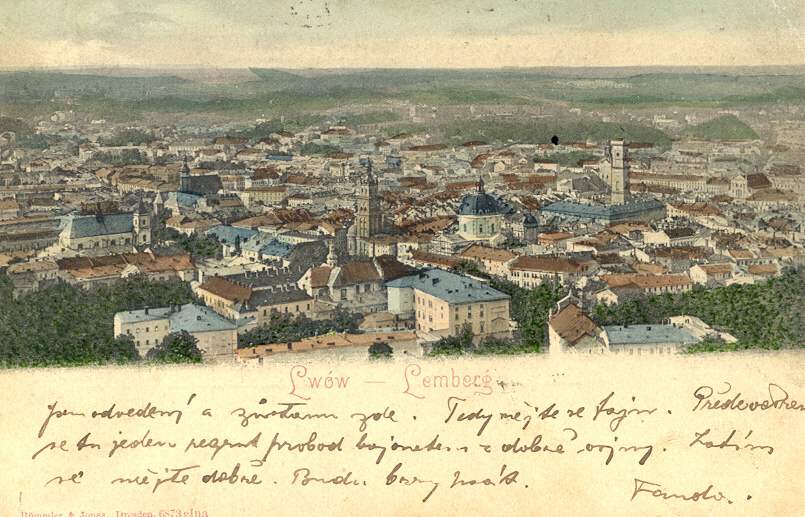 Lwów — Lemberg.
Jsem odvedený a zůstanu zde. Tedy mějte se fajn. Předevčírem
se tu jeden regrut probod bajonetem z dobré vojny. Zatím
se mějte dobře. Budu brzy psát.
Fanda.
Römmler & Jonas, Dresden. 6873